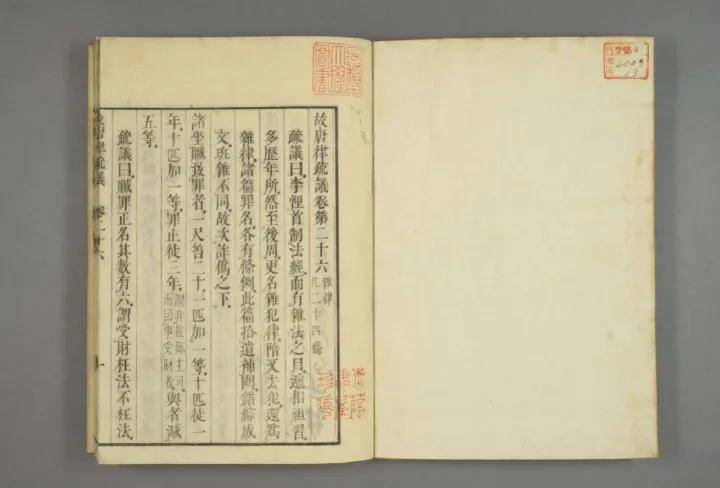 故唐律疏議卷第二十六 雜律 凡二十四條
疏議曰李悝首制法經而有雜法之目遞相祖習
多歷年所然至後周更名雜犯律隋又去犯還爲
雜律諸篇罪名各有條例此篇拾遺補闕錯綜成
文班雜不同故次詐僞之下
諸坐贓致罪者一尺笞二十一匹加一等十匹徒一
年十匹加一等罪止徒三年謂非監臨主司
而因事受財者與者減
五等
疏議曰贓罪正名其數有六謂受財枉法不枉法
故唐律疏議 卷二十六 一
圖書